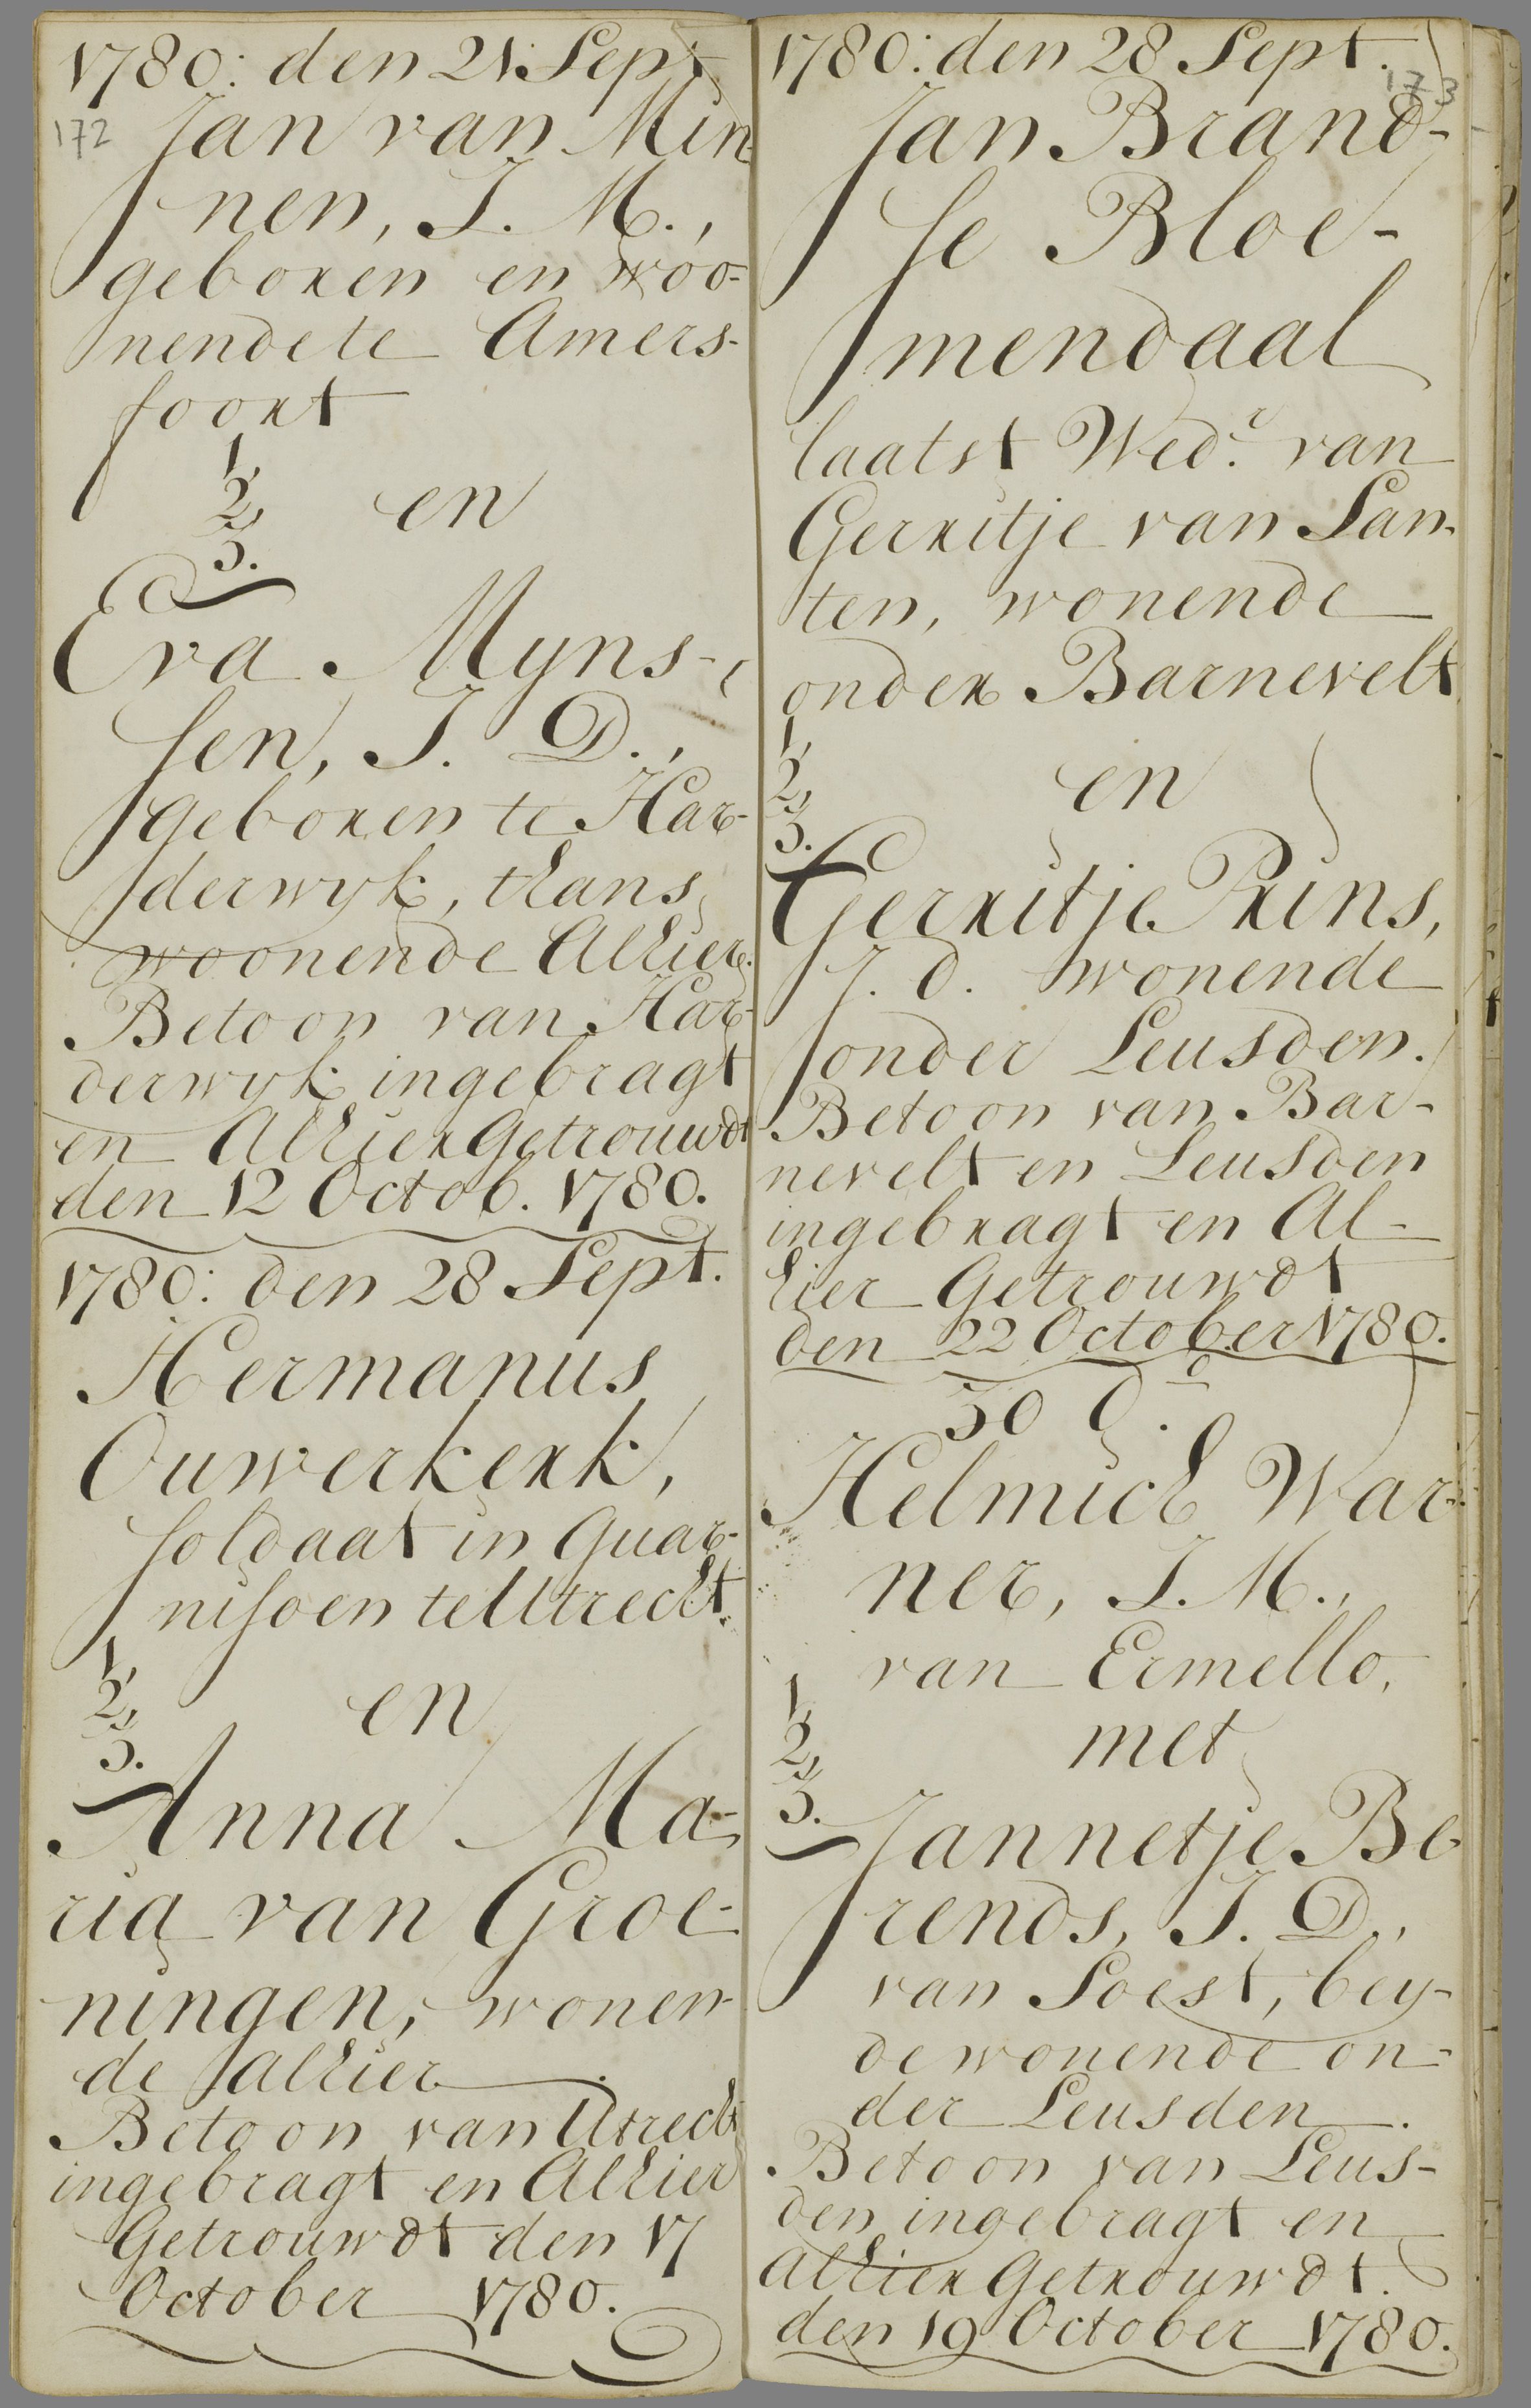 1780: den 21 Sept.
172
Jan van Min
nen, J. M.,
geboren en woo-
nende te Amers-
foort
1,
2, en
3.
Eva Myns-
sen, J. D.,
geboren te Har-
derwyk, thans
woonende Alhier.
Betoon van Har-
derwyk ingebragt
en Alhier Getrouwdt
den 12 Octob. 1780.
1780: den 28 Sept.
Hermanus
Ouwerkerk,
soldaat in Guar-
nisoen te Utrecht
1,
2, en
3.
Anna Ma-
ria van Groe-
ningen, wonen-
de alhier.
Betoon van Utrecht
ingebragt en Alhier
Getrouwdt den 17
October 1780.
1780: den 28 Sept.
173
Jan Brand-
se Bloe-
mendaal
laatst Wedr. van
Gerritje van San-
ten, wonende
onder Barnevelt
1,
2, en
3.
Gerritje Prins,
J. d. wonende
onder Leusden.
Betoon van Bar-
nevelt en Leusden
ingebragt en Al-
hier Getrouwdt
den 22 October 1780.
30 do.
Helmich War-
ner, J. M.,
van Ermello,
1,
2, met
3.
Jannetje Be
rends, J. D.,
van Soest, bey-
de wonende on-
der Leusden.
Betoon van Leus-
den ingebragt en
alhier Getrouwdt.
den 19 October 1780.